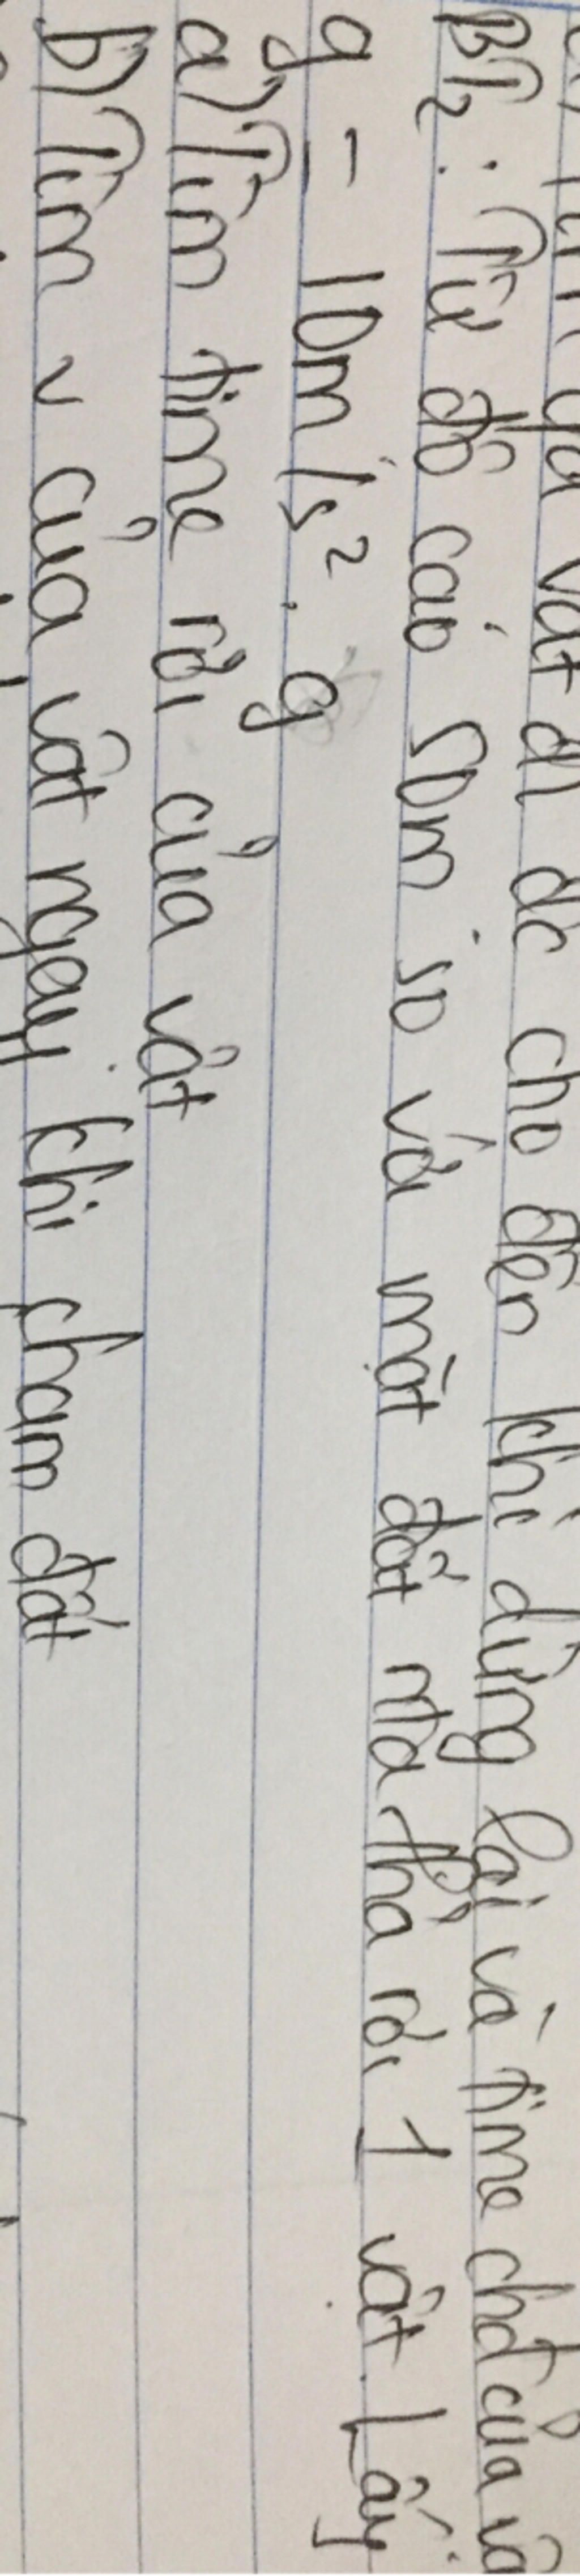 vật đi đc cho đến khi dừng lại và time chđ của
BT2: Từ độ cao 50m so với mặt đất nta thả rơi 1 vật. Lấy
g = 10m/s². g
a) Tìm time rơi của vật
b) Tìm v của vật ngay khi chạm đất